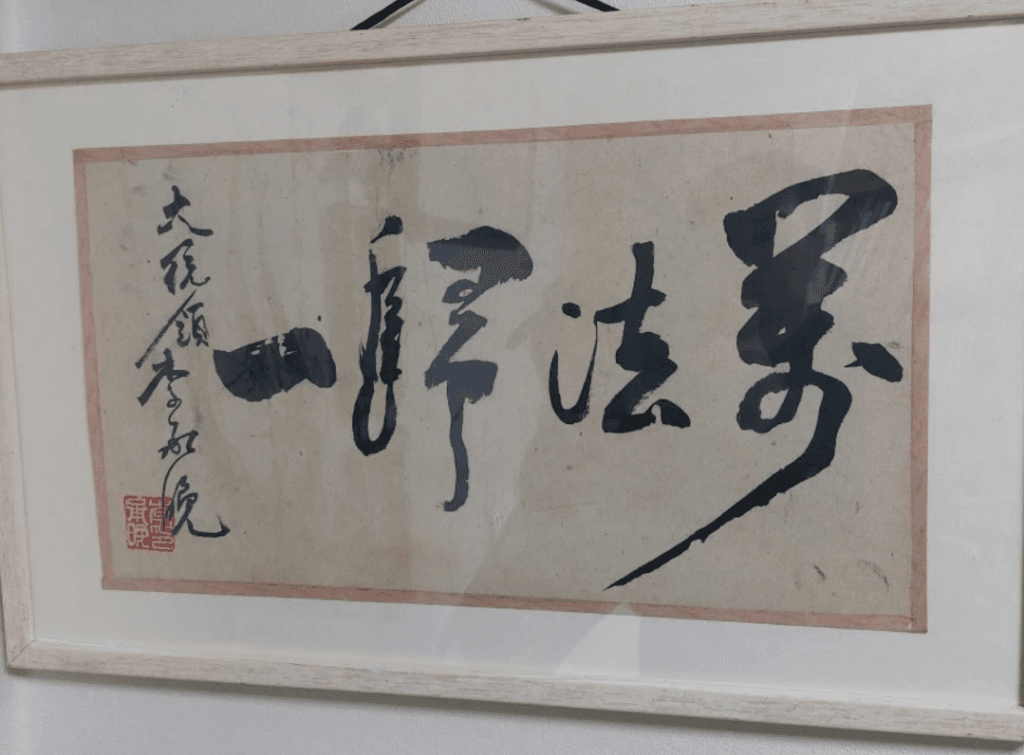 萬法歸一
大統領李承晩